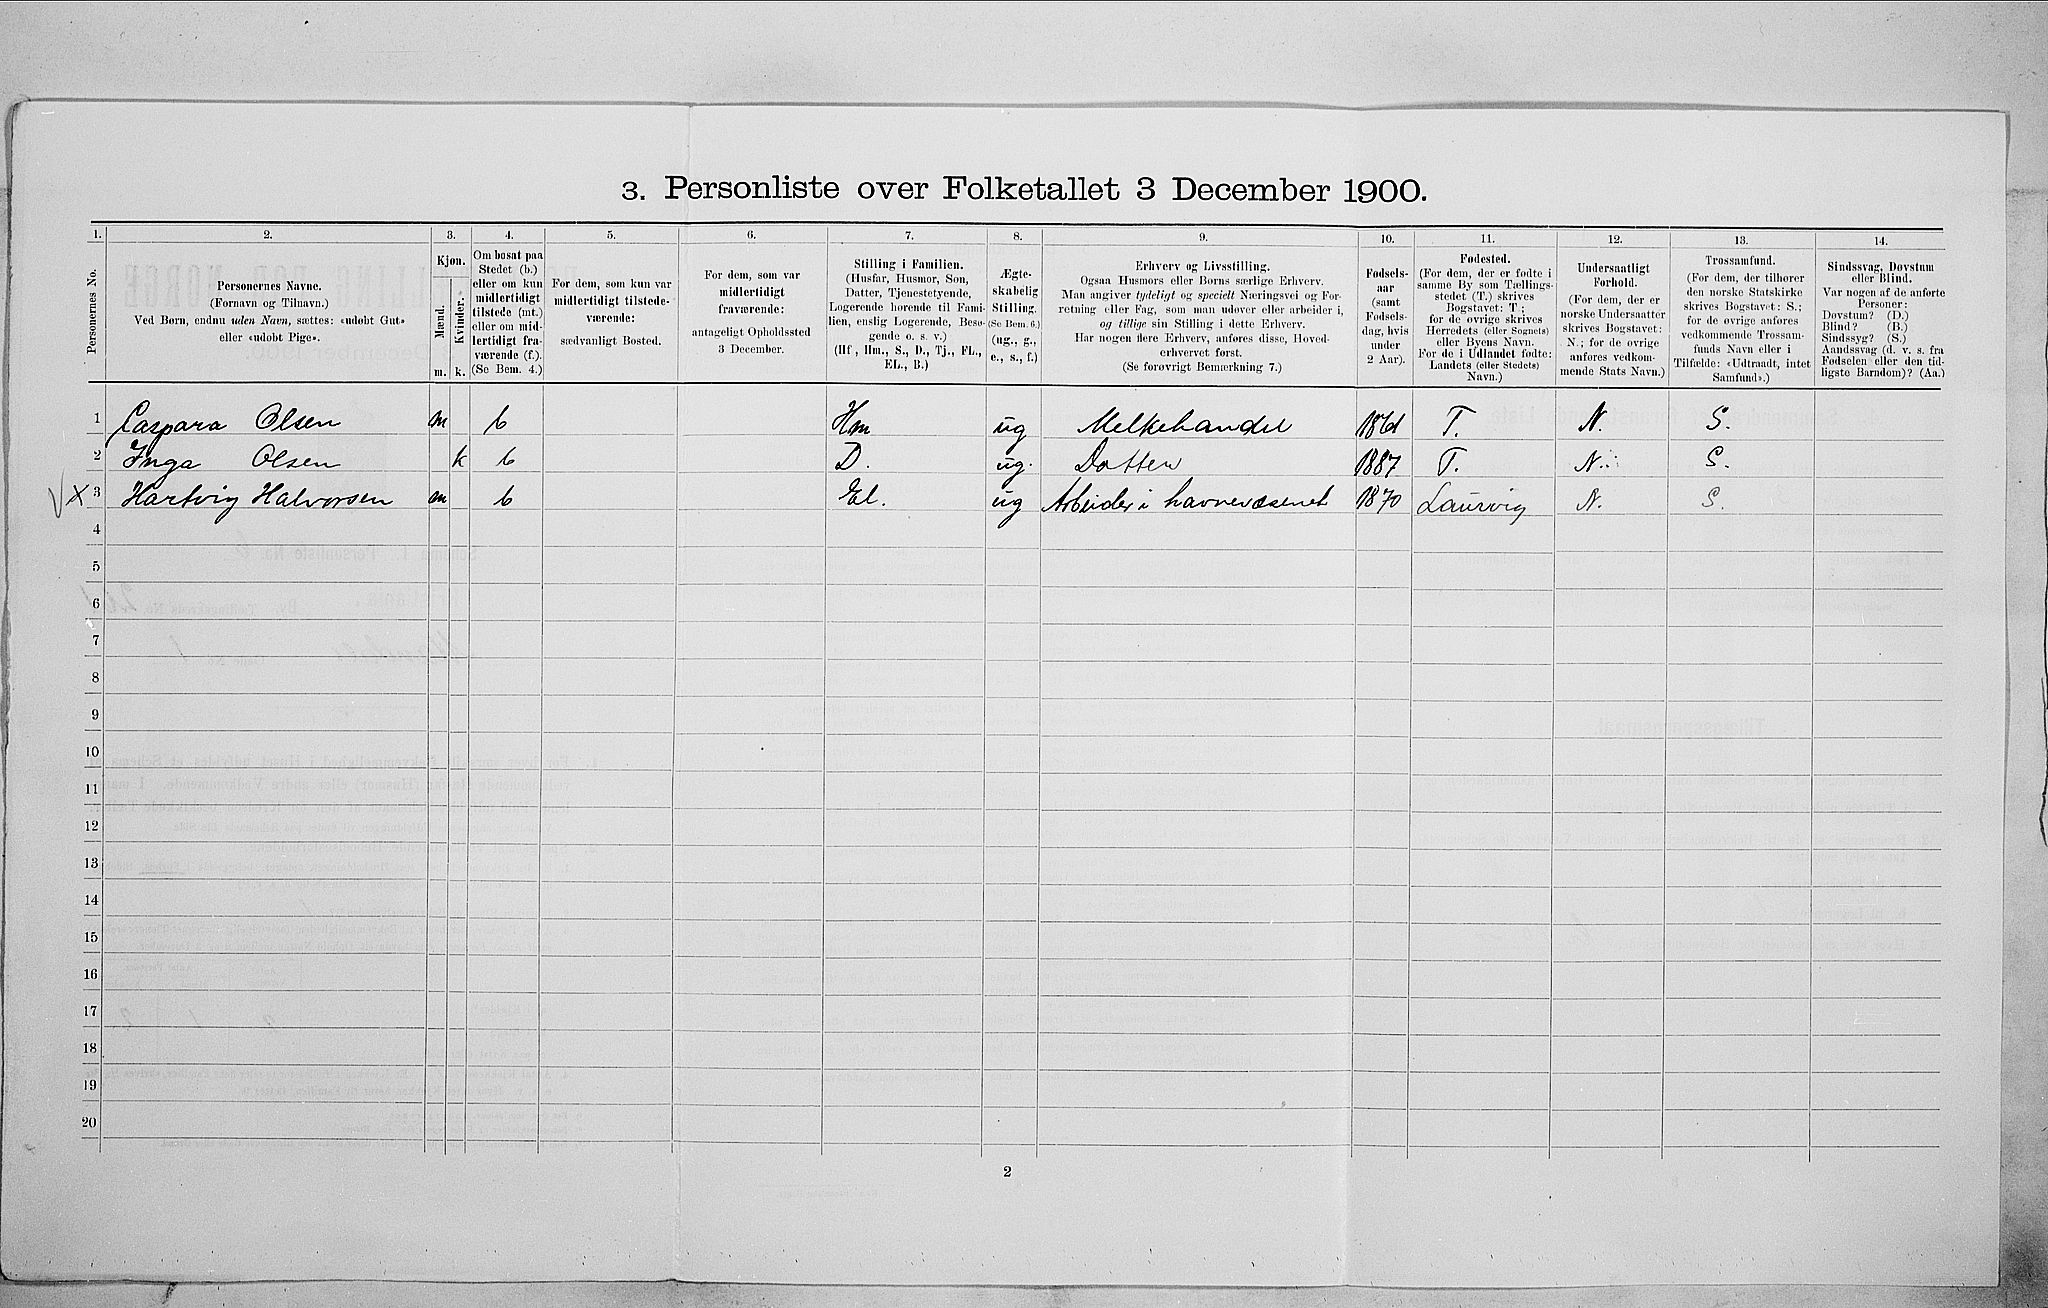 3. Personliste over Folketallet 3 December 1900.
1. 2. 3. 4. 5. 6. 7. 8. 9. 10. 11. 12. 13. 14.
Personernes No.
Personernes Navne.
(Fornavn og Tilnavn.)
Ved Børn, endnu uden Navn, sættes: «udøbt Gut»
eller «udøbt Pige».
Kjøn.
Mænd.
Kvinder.
m. k.
Om bosat paa
Stedet (b.)
eller om kun
midlertidigt
tilstede (mt.)
eller om mid-
lertidigt fra-
værende (f.).
(Se Bem. 4.)
For dem, som kun var
midlertidigt tilstede-
værende:
sædvanligt Bosted.
For dem, som var
midlertidigt
fraværende:
antageligt Opholdssted
3 December.
Stilling i Familien.
(Husfar, Husmor, Søn,
Datter, Tjenestetyende,
Logerende hørende til Fami-
lien, enslig Logerende, Besø-
gende o. s. v.)
(Hf., Hm., S., D., Tj., FL.,
EL., B.)
Ægte-
skabelig
Stilling.
(Se Bem. 6.)
(ug., g.,
e., s., f.)
Erhverv og Livsstilling.
Ogsaa Husmors eller Børns særlige Erhverv.
Man angiver tydeligt og specielt Næringsvei og For-
retning eller Fag, som man udøver eller arbeider i,
og tillige sin Stilling i dette Erhverv.
Har nogen flere Erhverv, anføres disse, Hoved-
erhvervet først.
(Se forøvrigt Bemærkning 7.)
Fødsels-
aar
(samt
Fødsels-
dag, hvis
under
2 Aar).
Fødested.
(For dem, der er fødte i
samme By som Tællings-
stedet (T.) skrives
Bogstavet: T;
for de øvrige skrives
Herredets (eller Sognets)
eller Byens Navn.
For de i Udlandet fødte:
Landets (eller Stedets)
Navn.)
Undersaatligt
Forhold.
(For dem, der er
norske Undersaatter
skrives Bogstavet:
N.; for de øvrige
anføres vedkom-
mende Stats Navn.)
Trossamfund.
(For dem, der tilhører
den norske Statskirke
skrives Bogstavet: S.;
for de øvrige anføres
vedkommende Trossam-
funds Navn eller i
Tilfælde: «Udtraadt, intet
Samfund».)
Sindssvag, Døvstum
eller Blind.
Var nogen af de anførte
Personer:
Døvstum? (D.)
Blind? (B.)
Sindssyg? (S.)
Aandssvag (d. v. s. fra
Fødselen eller den tid-
ligste Barndom)? (Aa.)
1 Caspara Olsen m b Hm ug Melkehandel 1861 T. N. S.
2 Inga Olsen k b D. ug. Datter 1887 T. N. S.
3 Hartvig Halvorsen m b El. ug Arbeider i havnevæsenet 1870 Laurvig N. S.
4
5
6
7
8
9
10
11
12
13
14
15
16
17
18
19
20
2